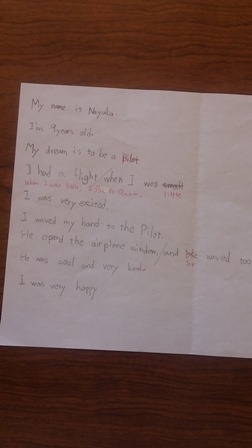 My name is Nayuka.
I'm 9 years old.
My dream is to be a pilot
I had a flight when I was small
When I was little, I to
little
I was very excited.
I waved my hand to the Pilot.
He opend the airplane window, and waved too
he
He was cool and very kind.
I was very happy